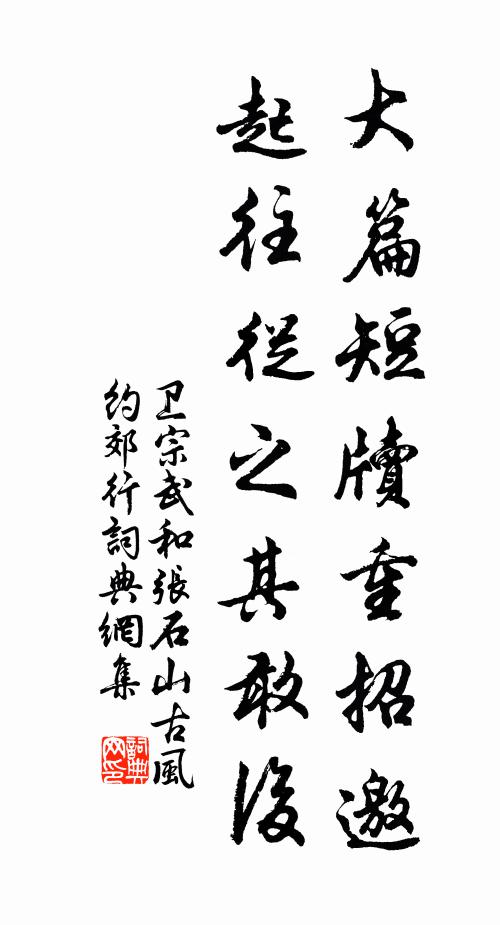 大篇短牘重招邀
起往從之其敢後
卫宗武和張石山古風
約郊行詞典網集
詞典
网印